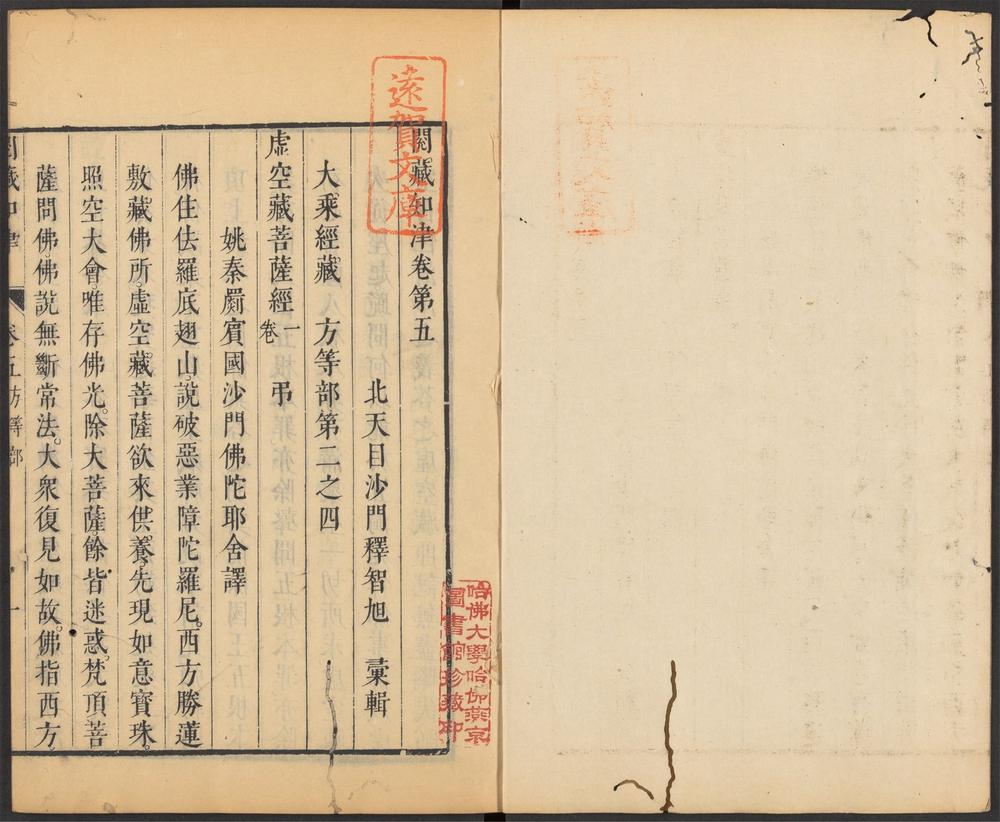 閱藏知津卷第五
北天目沙門釋智旭 彚輯
大乘經藏 方等部第二之四
虛空藏菩薩經一卷 弔
姚秦罽賓國沙門佛陀耶舍譯
佛住佉羅底翅山。說破惡業障陀羅尼。西方勝蓮
敷藏佛所。虛空藏菩薩欲來供養。先現如意寶珠。
照空大會。唯存佛光。除大菩薩。餘皆迷惑。梵頂菩
薩問佛。佛說無斷常法。大衆復見如故。佛指西方。
閱藏知津 卷五方等部 一
遠賀文庫
哈佛大學哈佛燕京
圖書館珍藏印